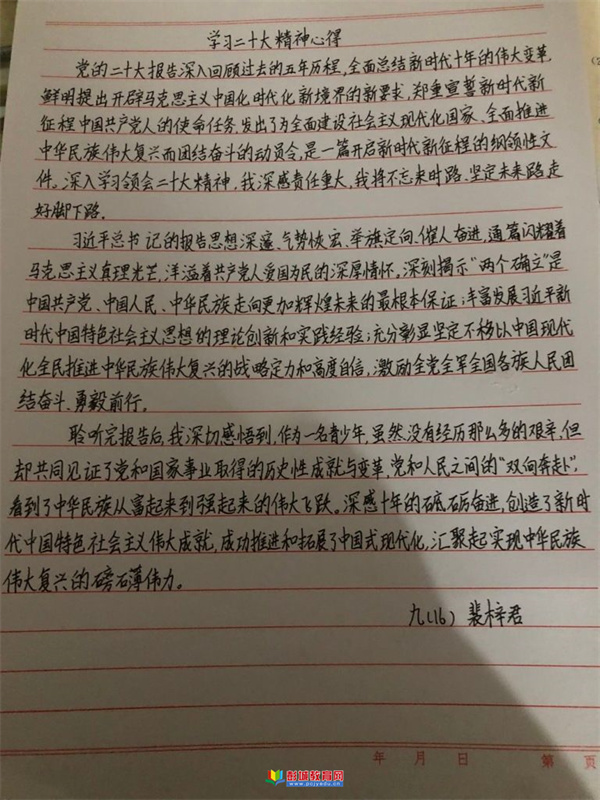 学习二十大精神心得
党的二十大报告深入回顾过去的五年历程,全面总结新时代十年的伟大变革,
鲜明提出开辟马克思主义中国化时代化新境界的新要求,郑重宣誓新时代新
征程中国共产党人的使命任务,发出了为全面建设社会主义现代化国家、全面推进
中华民族伟大复兴而团结奋斗的动员令,是一篇开启新时代新征程的纲领性文
件。深入学习领会二十大精神,我深感责任重大,我将不忘来时路、坚定未来路,走
好脚下路.
习近平总书记的报告思想深邃、气势恢宏、举旗定向、催人奋进,通篇闪耀着
马克思主义真理光芒,洋溢着共产党人爱国为民的深厚情怀。深刻揭示“两个确立”是
中国共产党、中国人民、中华民族走向更加辉煌未来的最根本保证;丰富发展习近平新
时代中国特色社会主义思想的理论创新和实践经验;充分彰显坚定不移以中国现代
化全民推进中华民族伟大复兴的战略定力和高度自信,激励全党全军全国各族人民团
结奋斗、勇毅前行。
聆听完报告后,我深切感悟到,作为一名青少年,虽然没有经历那么多的艰辛,但
却共同见证了党和国家事业取得的历史性成就与变革,党和人民之间的“双向奔赴”,
看到了中华民族从富起来到强起来的伟大飞跃。深感十年的砥砺奋进,创造了新时
代中国特色社会主义伟大成就,成功推进和拓展了中国式现代化,汇聚起实现中华民族
伟大复兴的磅礴伟力。
九(16) 裴梓君
年 月 日 第 页
彭城教育网
www.pcjyedu.cn